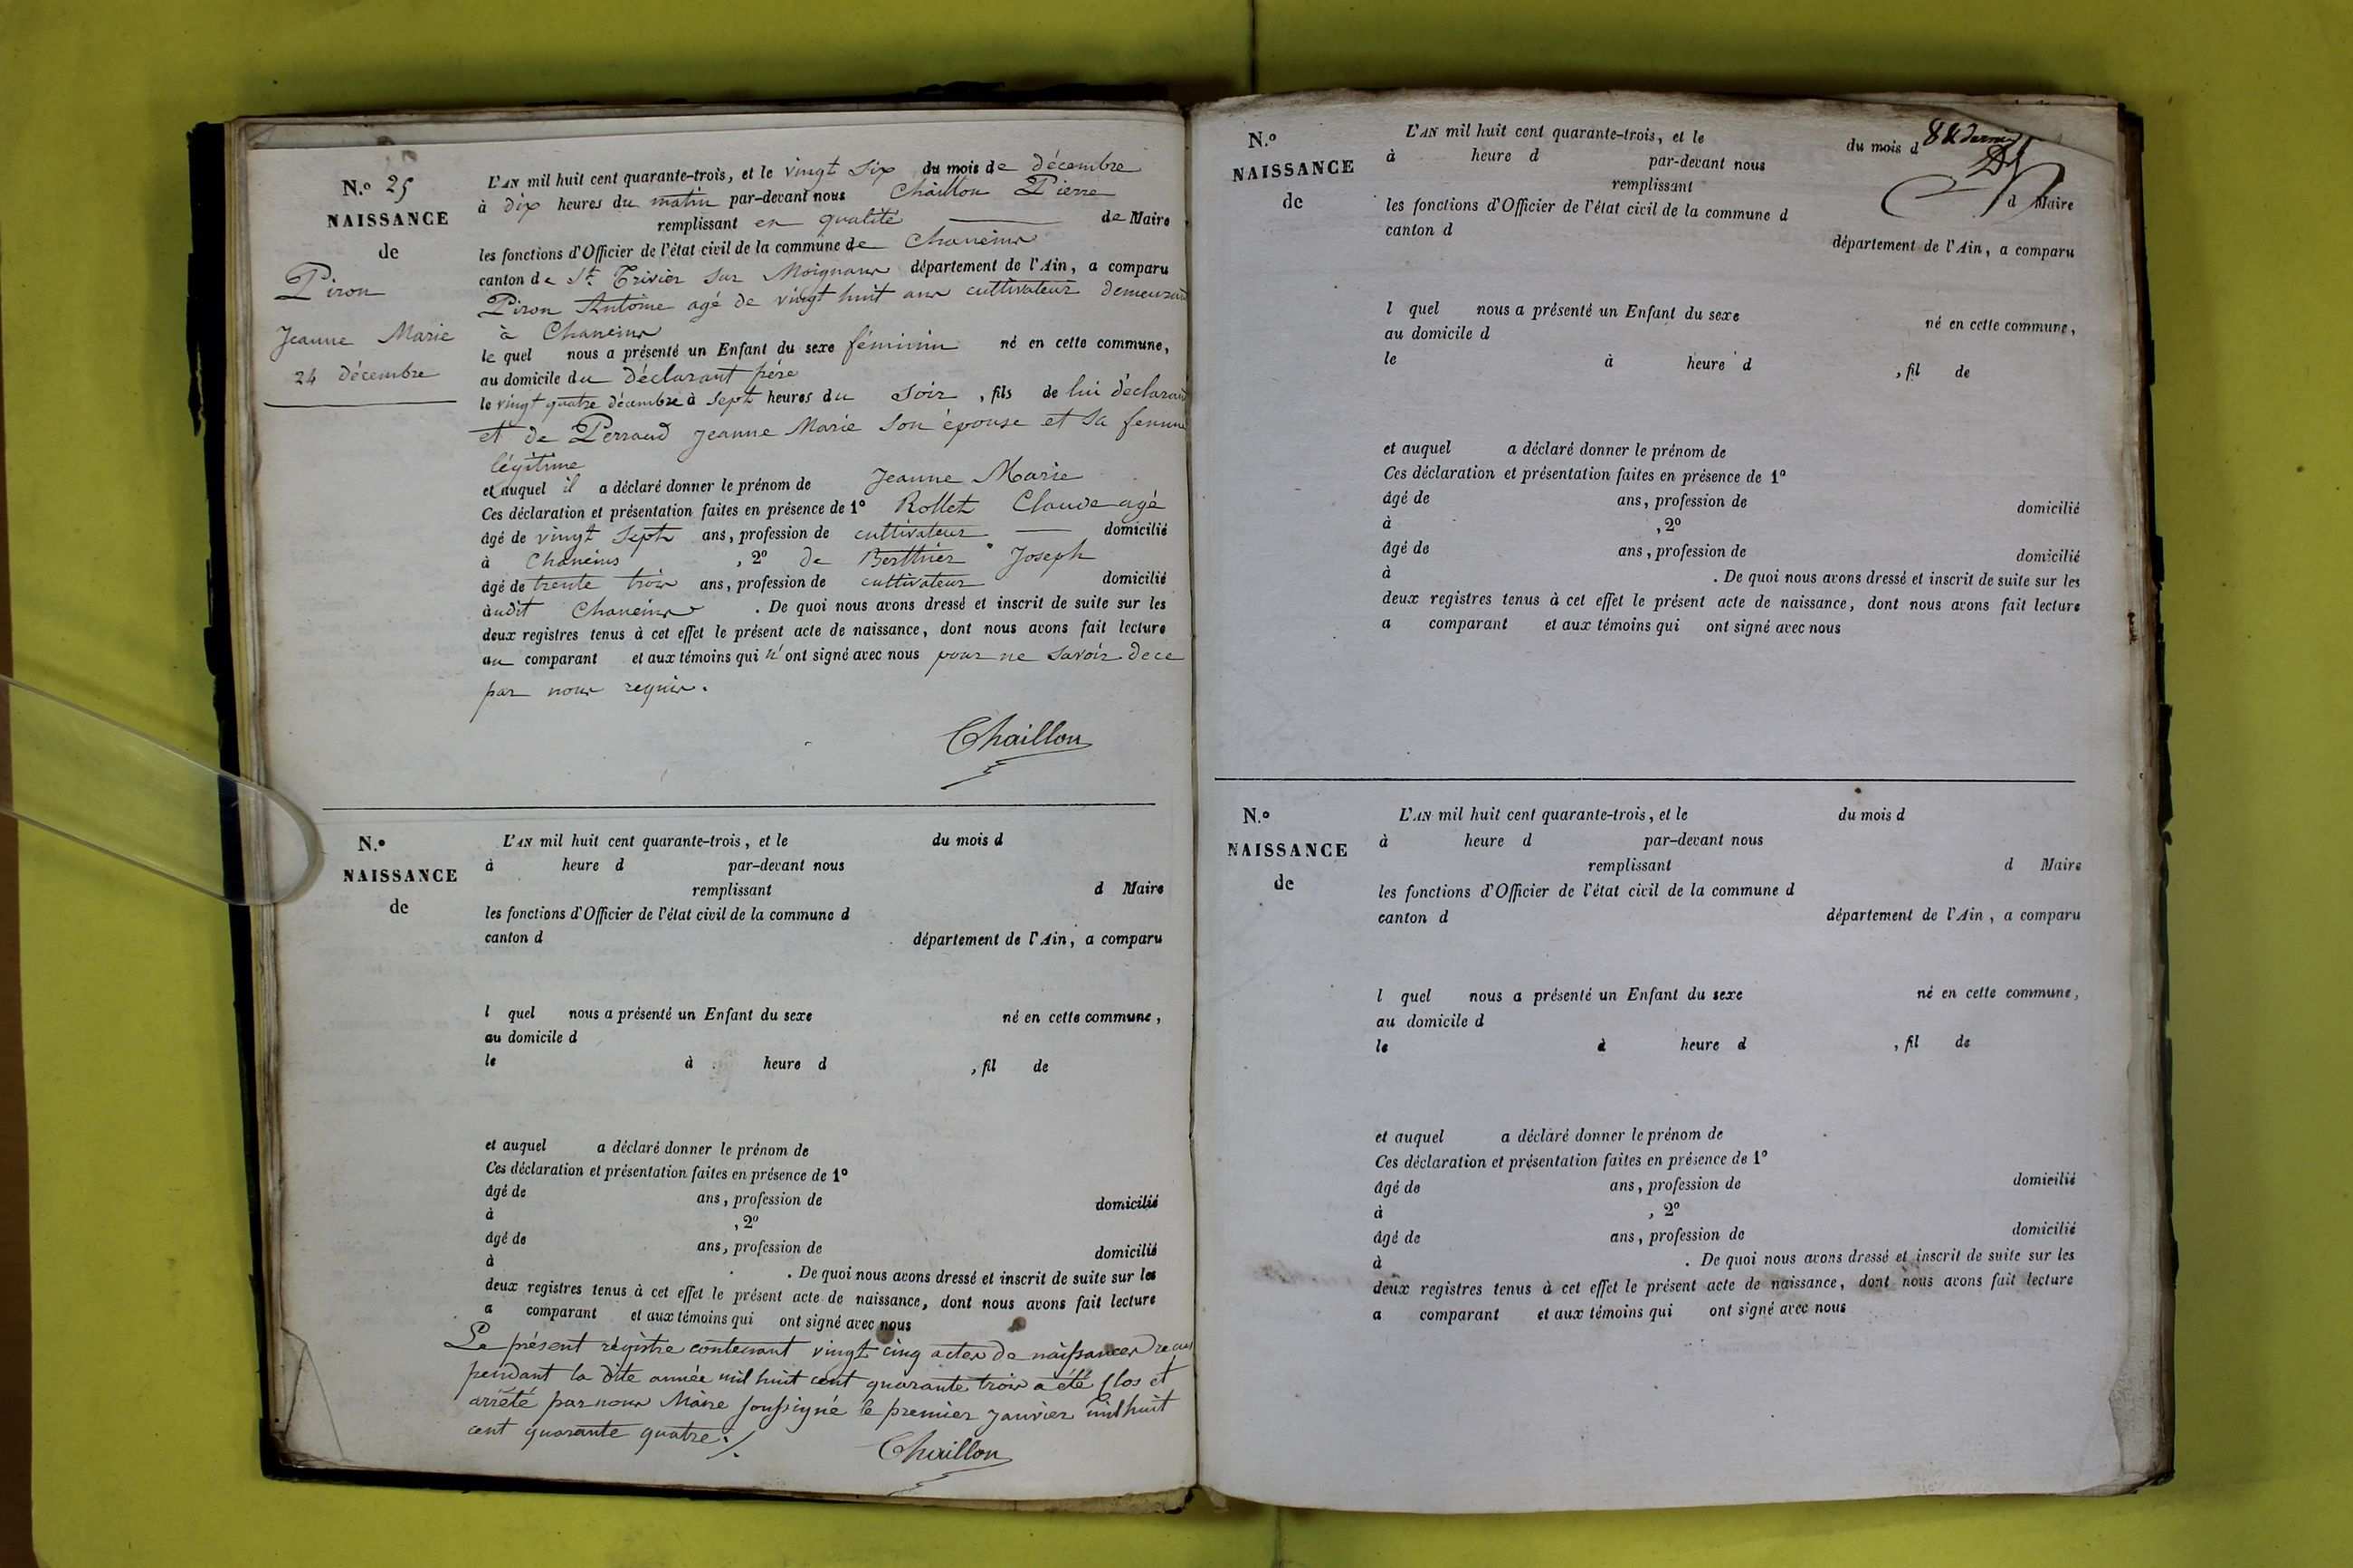 N.º 25
NAISSANCE
de
Piron
Jeanne Marie
24 décembre
L'AN mil huit cent quarante-trois, et le vingt six du mois de décembre
à dix heures du matin par-devant nous Chaillon Pierre
remplissant en qualité de Maire
les fonctions d'Officier de l'état civil de la commune de Chaneins
canton de St Trivier sur Moignans département de l'Ain, a comparu
Piron Antoine agé de vingt huit ans cultivateur demeurant
à Chaneins
le quel nous a présenté un Enfant du sexe féminin né en cette commune,
au domicile du déclarant père
le vingt quatre décembre à sept heures du soir, fils de lui déclarant
et de Perraud Jeanne Marie son épouse et sa femme
légitime
et auquel il a déclaré donner le prénom de Jeanne Marie
Ces déclaration et présentation faites en présence de 1º Rollet Claude agé
âgé de vingt sept ans, profession de cultivateur domicilié
à Chaneins, 2º de Berthier Joseph
âgé de trente trois ans, profession de cultivateur domicilié
àudit Chaneins. De quoi nous avons dressé et inscrit de suite sur les
deux registres tenus à cet effet le présent acte de naissance, dont nous avons fait lecture
au comparant et aux témoins qui n'ont signé avec nous pour ne savoir de ce
par nous requis.
Chaillon
N.º
NAISSANCE
de
L'AN mil huit cent quarante-trois, et le du mois d
à heure d par-devant nous
remplissant d Maire
les fonctions d'Officier de l'état civil de la commune d
canton d département de l'Ain, a comparu
l quel nous a présenté un Enfant du sexe né en cette commune,
au domicile d
le à heure d , fil de
et auquel a déclaré donner le prénom de
Ces déclaration et présentation faites en présence de 1º
âgé de ans, profession de domicilié
à , 2º
âgé de ans, profession de domicilié
à . De quoi nous avons dressé et inscrit de suite sur les
deux registres tenus à cet effet le présent acte de naissance, dont nous avons fait lecture
a comparant et aux témoins qui ont signé avec nous
Le présent régistre contenant vingt cinq actes de naissances reçus
pendant la dite année mil huit cent quarante trois a été clos et
arrêté par nous Maire soussigné le premier janvier mil huit
cent quarante quatre.
Chaillon
N.º
NAISSANCE
de
L'AN mil huit cent quarante-trois, et le du mois d
à heure d par-devant nous
remplissant d Maire
les fonctions d'Officier de l'état civil de la commune d
canton d département de l'Ain, a comparu
l quel nous a présenté un Enfant du sexe né en cette commune,
au domicile d
le à heure d , fil de
et auquel a déclaré donner le prénom de
Ces déclaration et présentation faites en présence de 1º
âgé de ans, profession de domicilié
à , 2º
âgé de ans, profession de domicilié
à . De quoi nous avons dressé et inscrit de suite sur les
deux registres tenus à cet effet le présent acte de naissance, dont nous avons fait lecture
a comparant et aux témoins qui ont signé avec nous
N.º
NAISSANCE
de
L'AN mil huit cent quarante-trois, et le du mois d
à heure d par-devant nous
remplissant d Maire
les fonctions d'Officier de l'état civil de la commune d
canton d département de l'Ain, a comparu
l quel nous a présenté un Enfant du sexe né en cette commune,
au domicile d
le à heure d , fil de
et auquel a déclaré donner le prénom de
Ces déclaration et présentation faites en présence de 1º
âgé de ans, profession de domicilié
à , 2º
âgé de ans, profession de domicilié
à . De quoi nous avons dressé et inscrit de suite sur les
deux registres tenus à cet effet le présent acte de naissance, dont nous avons fait lecture
a comparant et aux témoins qui ont signé avec nous